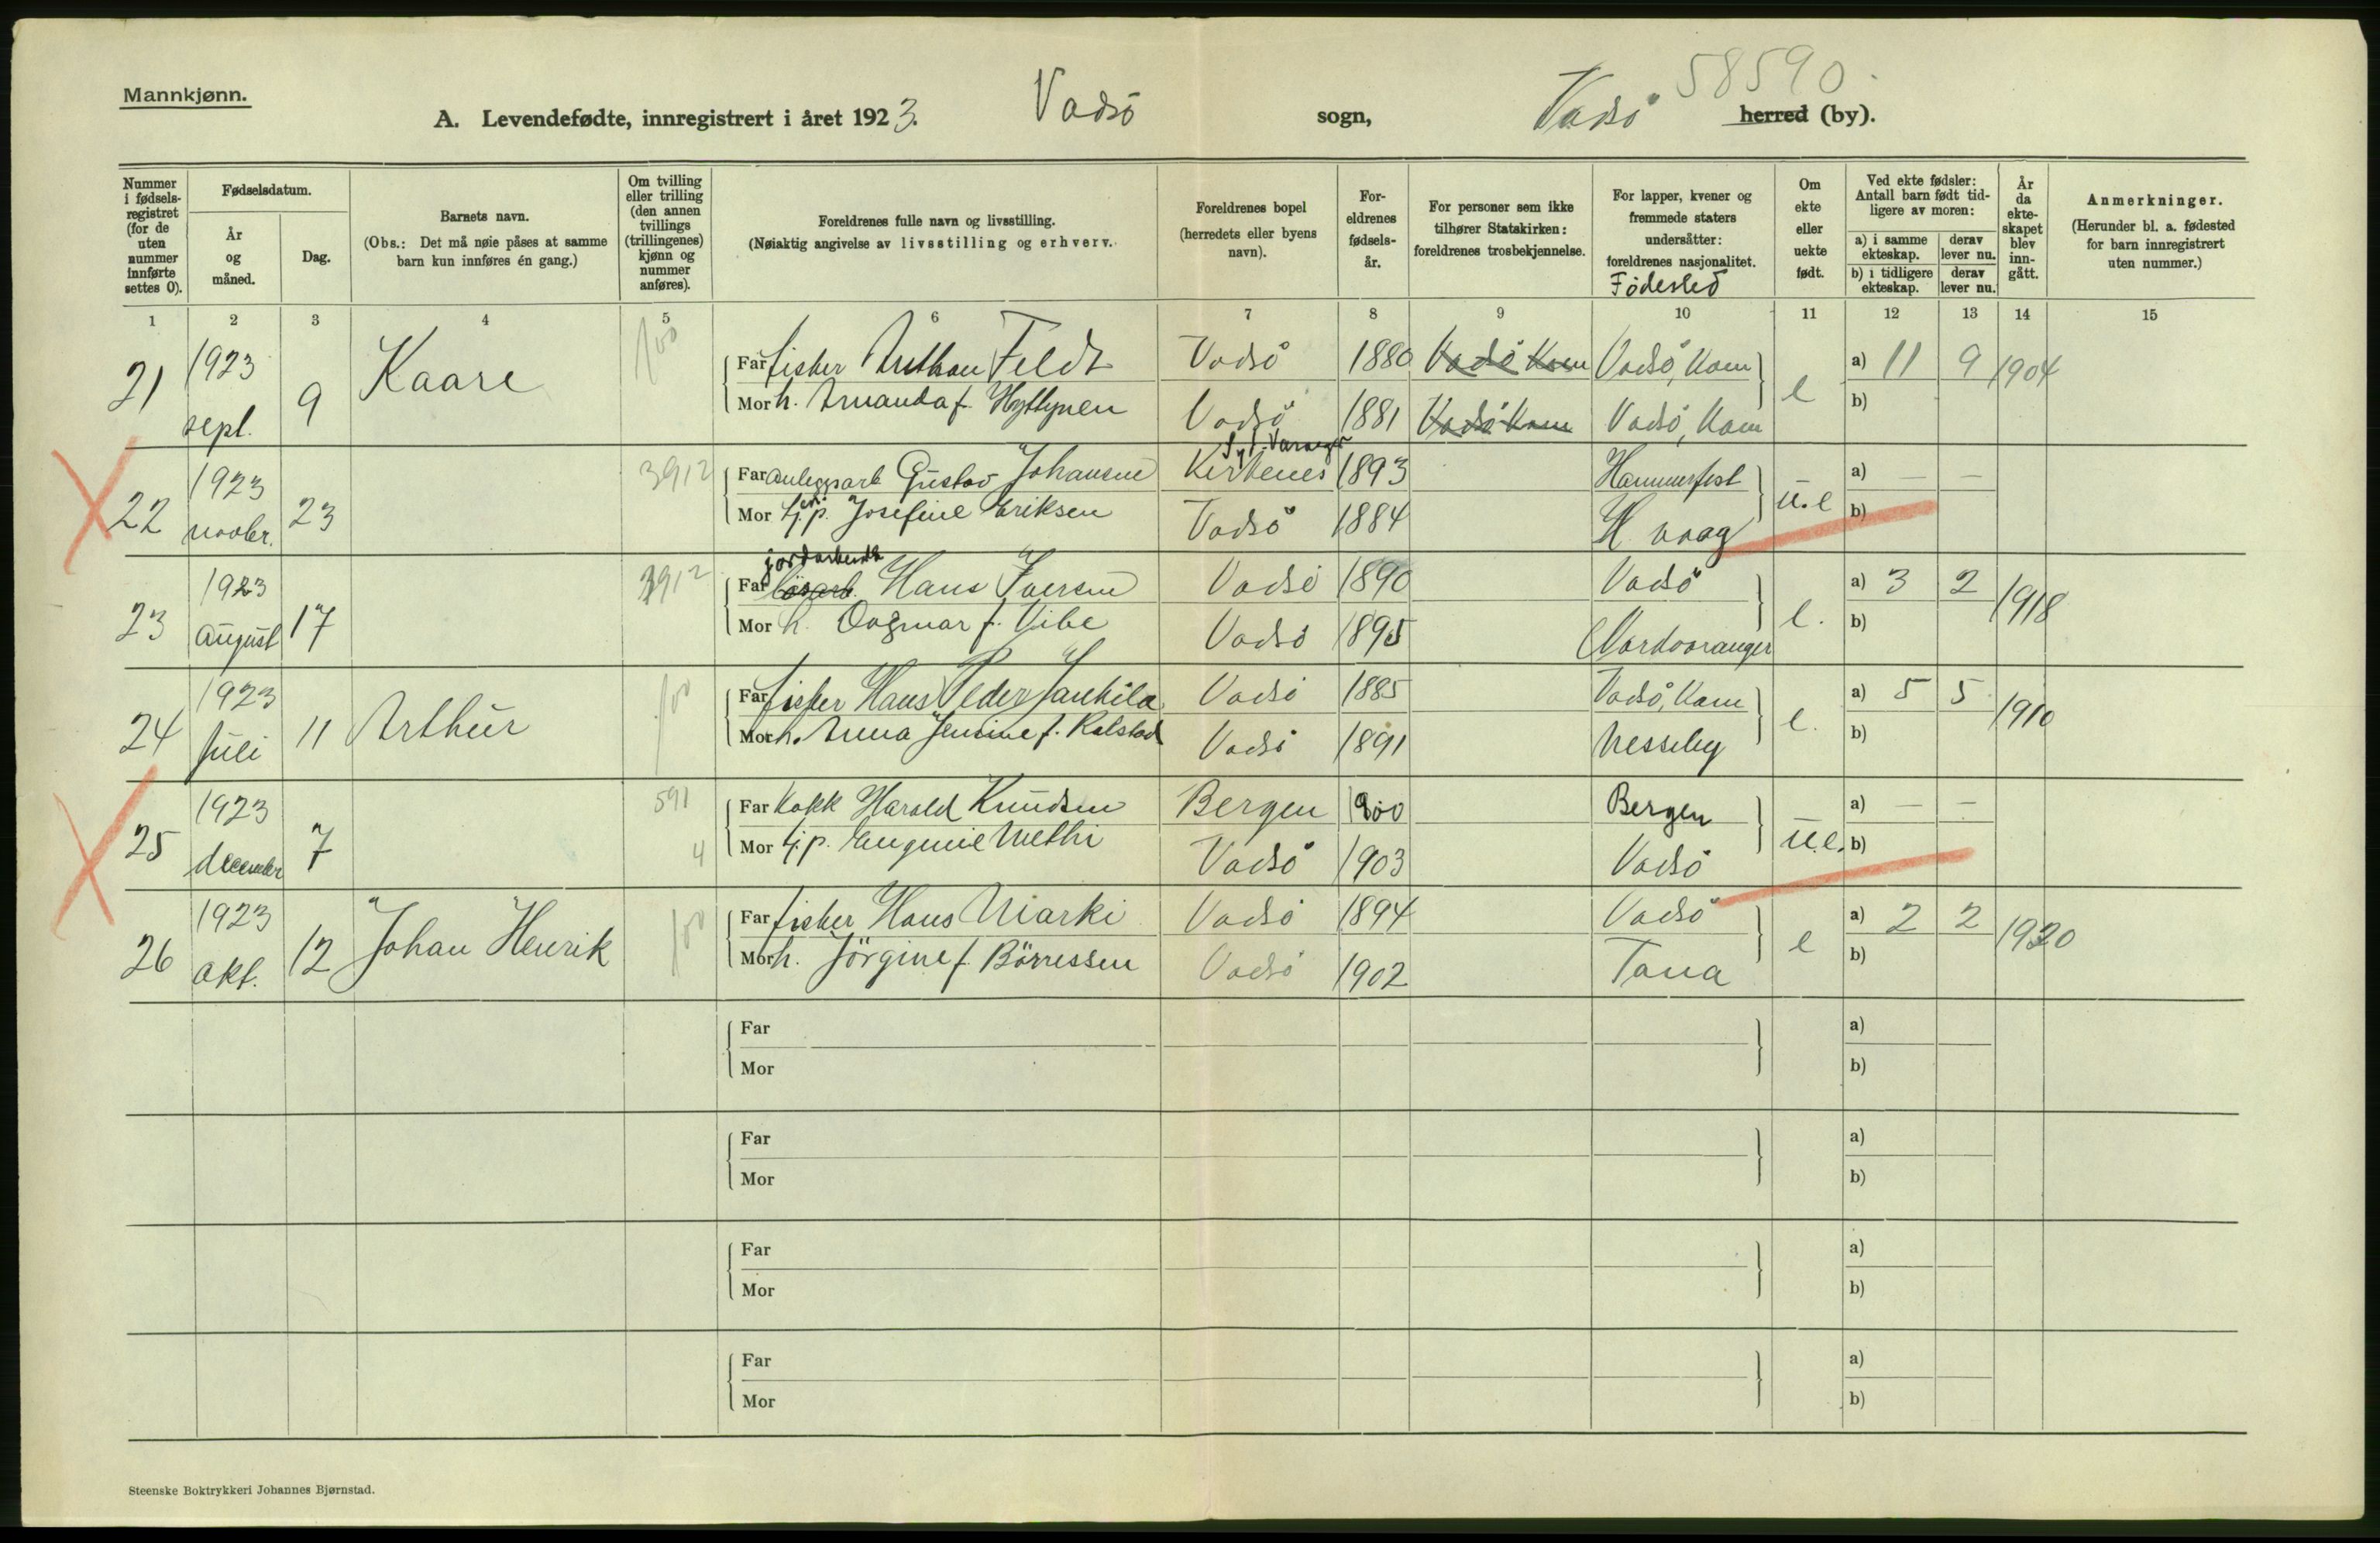 58590
Mannkjønn.
A. Levendefødte, innregistrert i året 1923. Vadsö sogn, Vadsö herred (by).
Nummer i fødsels-registret (for de uten nummer innførte settes 0).
Fødselsdatum.
År og måned.
Dag.
Barnets navn.
(Obs.: Det må nøie påses at samme barn kun innføres én gang.)
Om tvilling eller trilling (den annen tvillings (trillingenes) kjønn og nummer anføres).
Foreldrenes fulle navn og livsstilling.
(Nøiaktig angivelse av livsstilling og erhverv.
Foreldrenes bopel (herredets eller byens navn).
For-eldrenes fødsels-år.
For personer som ikke tilhører Statskirken: foreldrenes trosbekjennelse.
For lapper, kvener og fremmede staters undersåtter: foreldrenes nasjonalitet.
Födested
Om ekte eller uekte født.
Ved ekte fødsler: Antall barn født tid-ligere av moren:
a) i samme ekteskap. derav lever nu.
b) i tidligere ekteskap. derav lever nu.
År da ekte-skapet blev inn-gått.
Anmerkninger.
(Herunder bl. a. fødested for barn innregistrert uten nummer.)
1 2 3 4 5 6 7 8 9 10 11 12 13 14 15
21 1923 sept. 9 Kaare 100
Far fisker Anthon Feldt Vadsö 1880 Vadsö Kom Vadsö, Kom e a) 11 9 1904
Mor h. Amanda f. Vadsö 1881 Vadsö Kom Vadsö, Kom b)
22 1923 novbr. 23 3912
Syd-Varanger
Far anleggsarb Gustav Johansen Kirkenes 1893 Hammerfest u.e a) — —
Mor Josefine Eriksen Vadsö 1884 H. vaag b)
23 1923 august 17 3912
jordarbeider
Far lösarb. Hans Iversen Vadsö 1890 Vadsö e. a) 3 2 1918
Mor h. Dagmar f. Vibe Vadsö 1895 Nordvaranger b)
24 1923 juli 11 Arthur 100
Far fisker Hans Peder Jankila Vadsö 1885 Vadsö, Kom e. a) 5 5 1910
Mor h. Anna Jensine f. Kalstad Vadsö 1891 Nesseby b)
25 1923 december 7 591 4
Far Kokk Harald Knudsen Bergen 1900 Bergen u.e. a) — —
Mor t.j.p. Eugenie Methi Vadsö 1903 Vadsö b)
26 1923 okt. 12 Johan Henrik 100
Far fisker Hans Niarki Vadsö 1894 Vadsö e a) 2 2 1920
Mor h. Jörgine f. Börressen Vadsö 1902 Tana b)
Far a)
Mor b)
Far a)
Mor b)
Far a)
Mor b)
Far a)
Mor b)
Steenske Boktrykkeri Johannes Bjørnstad.